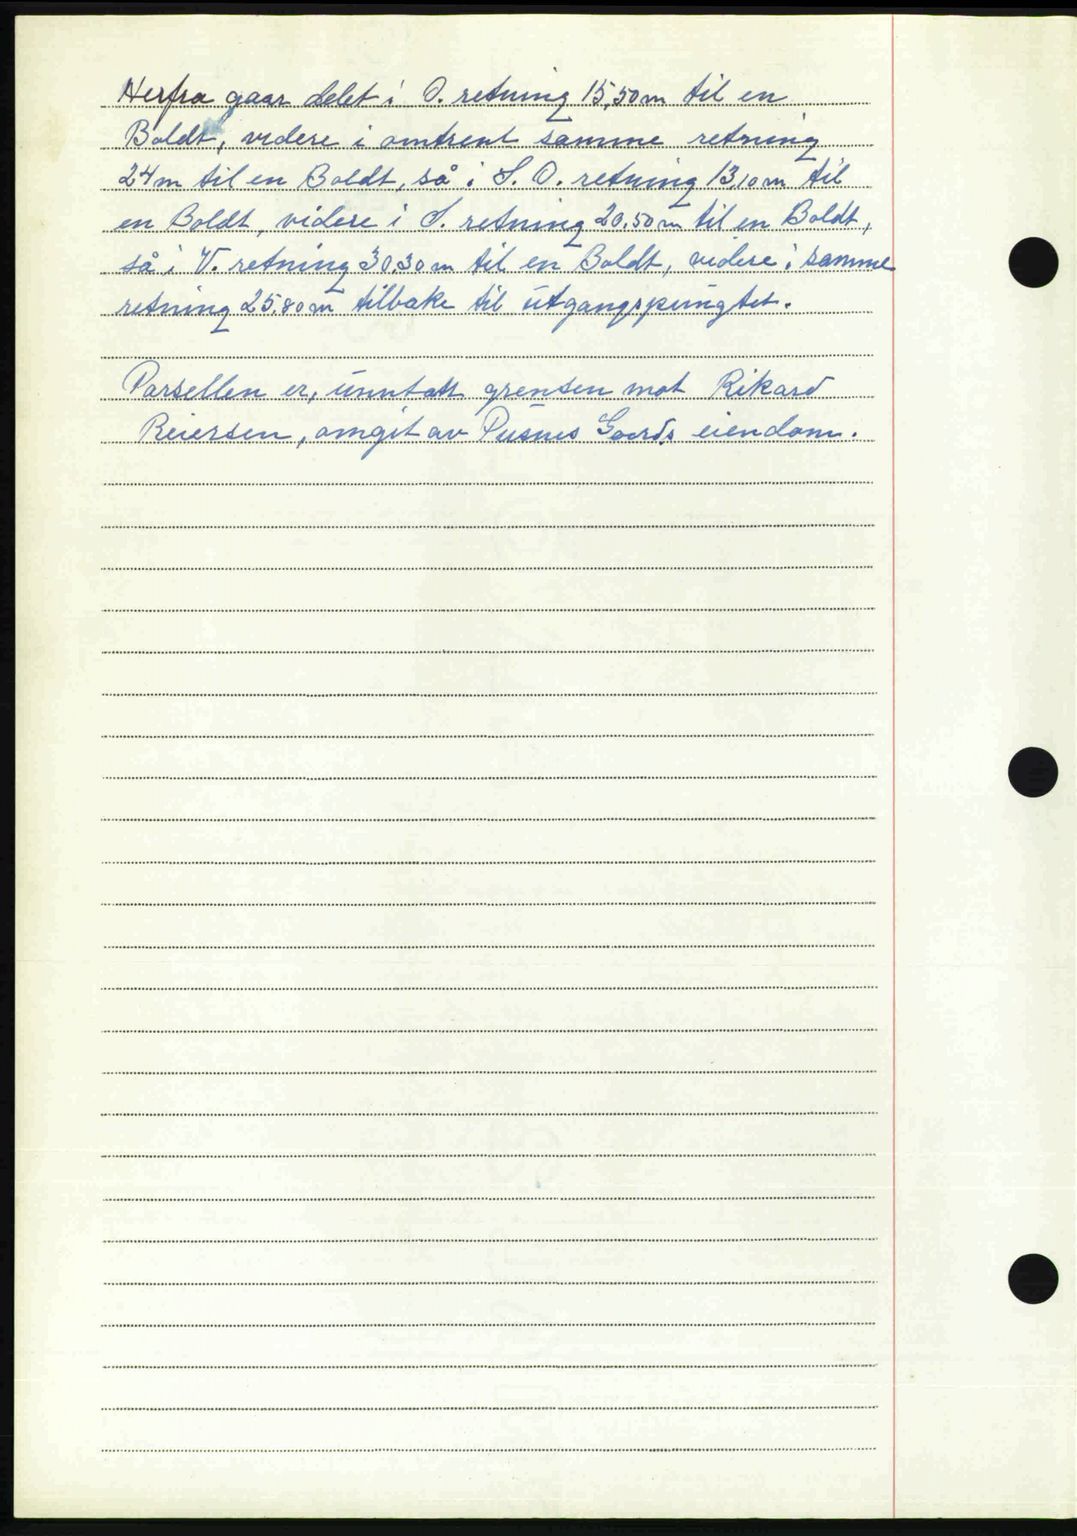 Herfra gaar delet i O. retning 15,50 m til en
Boldt, videre i omtrent samme retning
24 m til en Boldt, så i S. O. retning 13,10 m til
en Boldt, videre i S. retning 20.50 m til en Boldt,
så i V. retning 30,30 m til en Boldt, videre i samme
retning 25,80 m tilbake til utgangspungtet.
Parsellen er, unntatt grensen mot Rikard
Reiersen, omgit av Pusnes Gaards eiendom.